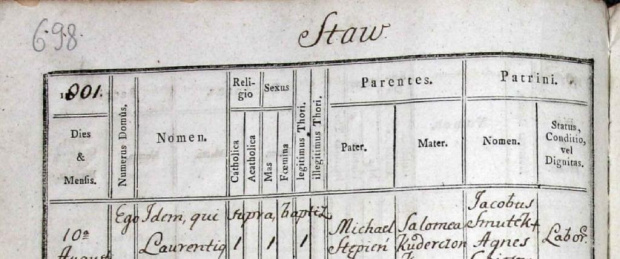 698
Staw
1801.
Dies & Mensis.
Numerus Domûs,
Nomen.
Religio
Catholica
Acatholica
Sexus
Mas
Fœmina
legitimus Thori.
illegitimus Thori.
Parentes.
Pater.
Mater.
Patrini.
Nomen.
Status, Conditio, vel Dignitas.
Ego Idem, qui supra, baptiz
10ª
Laurentiq 1 1 1
Michael
Stępień
Salomea
Jacobus
Smutek +
Agnes
Labor.